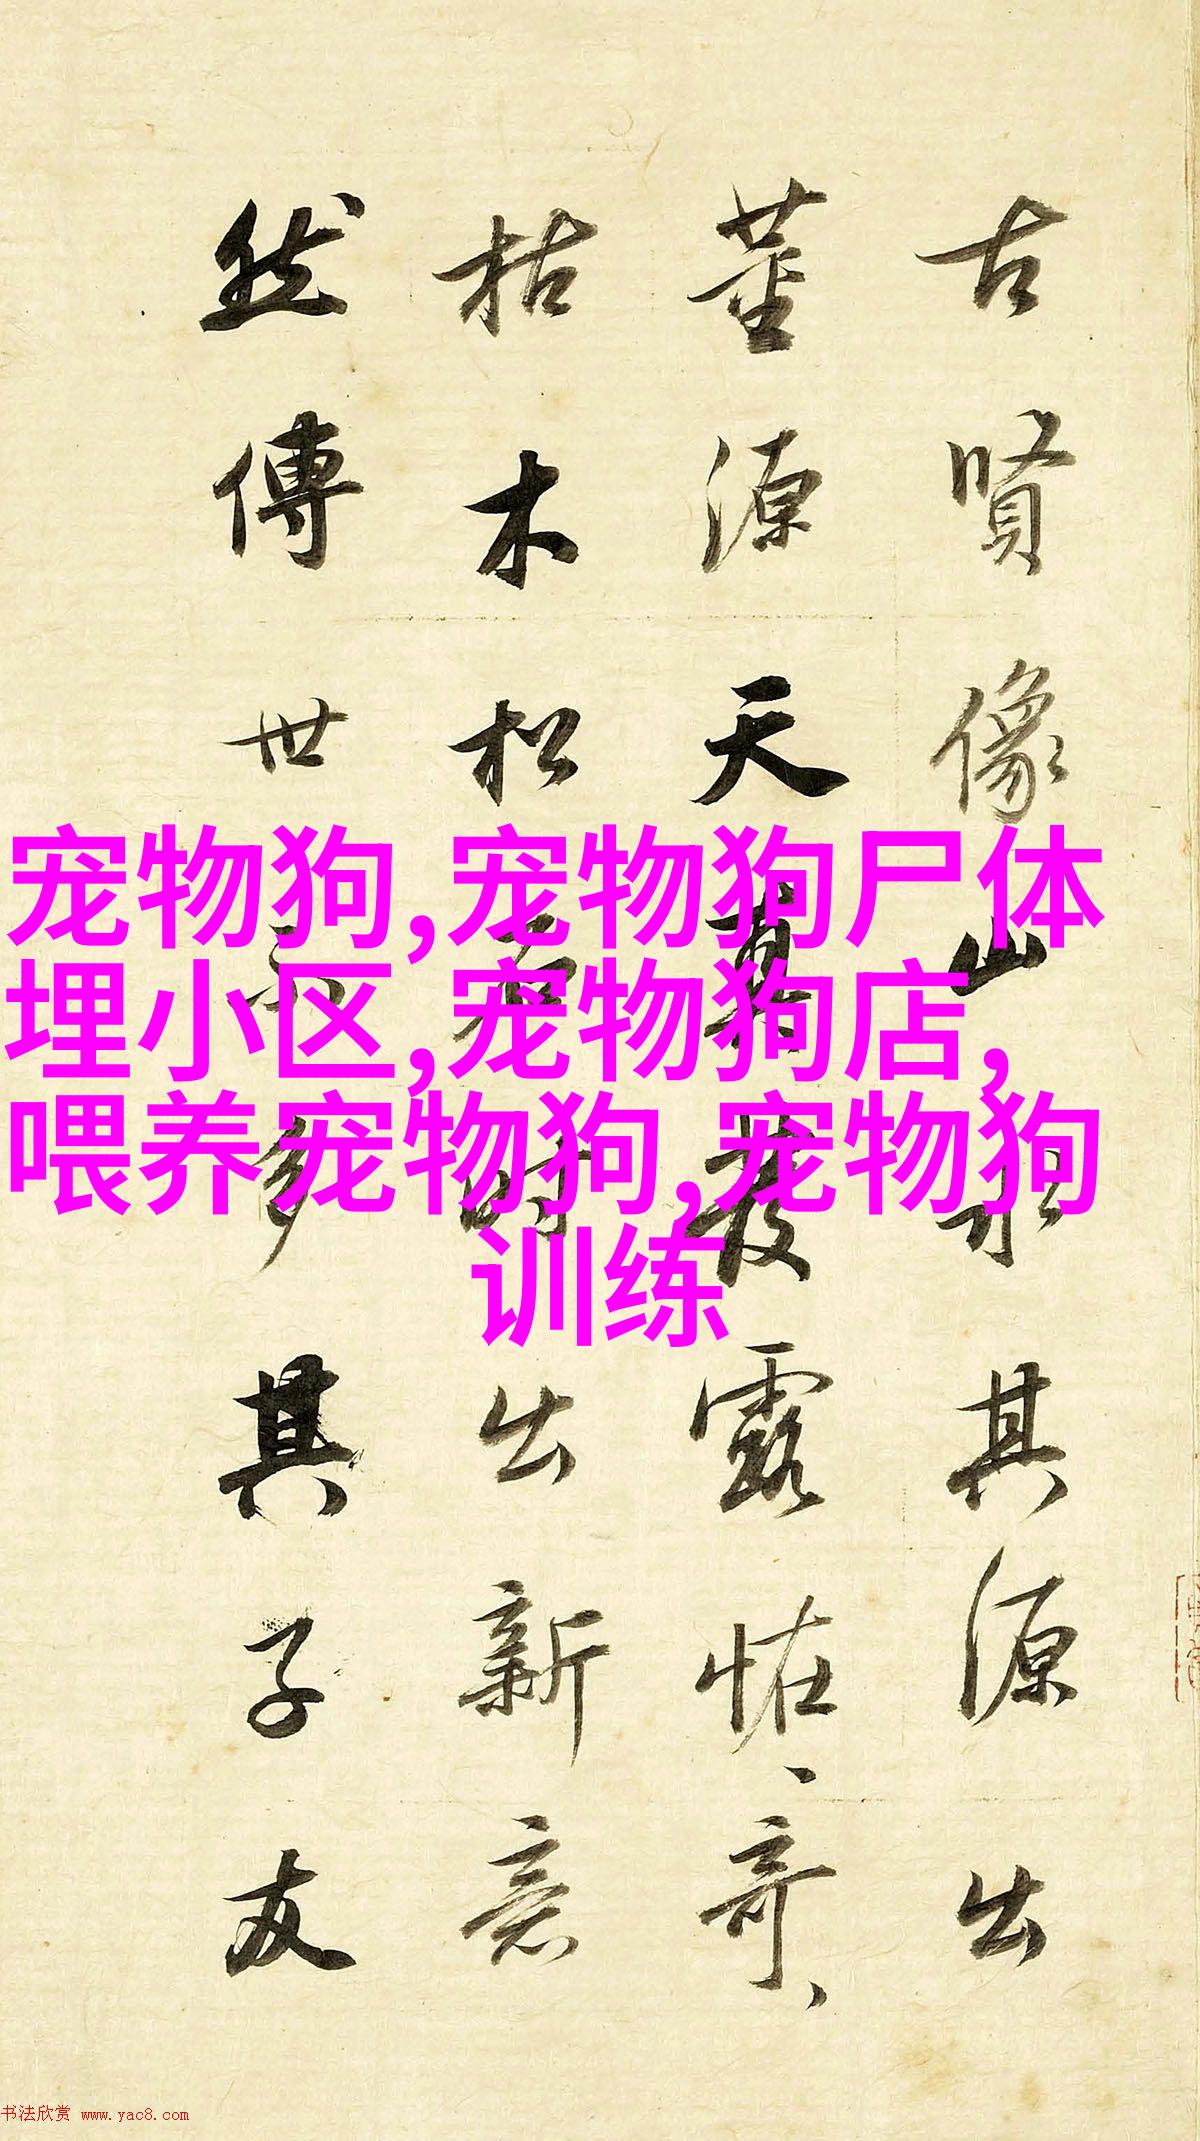 古賢像山水其源出
董源天真發露恠奇
枯木松石時出新意
然傳世不多其子友
宠物狗,宠物狗尸体
埋小区,宠物狗店,
喂养宠物狗,宠物狗
训练
书法欣赏 www.yac8.com